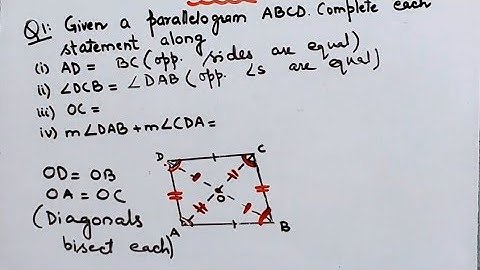 Q1: Given a parallelogram ABCD. Complete each
statement along
(i) AD = BC (opp. sides are equal)
ii) ∠DCB = ∠DAB (opp. ∠s are equal)
iii) OC =
iv) m∠DAB + m∠CDA =
OD = OB
OA = OC
(Diagonals
bisect each)
D
C
O
A
B